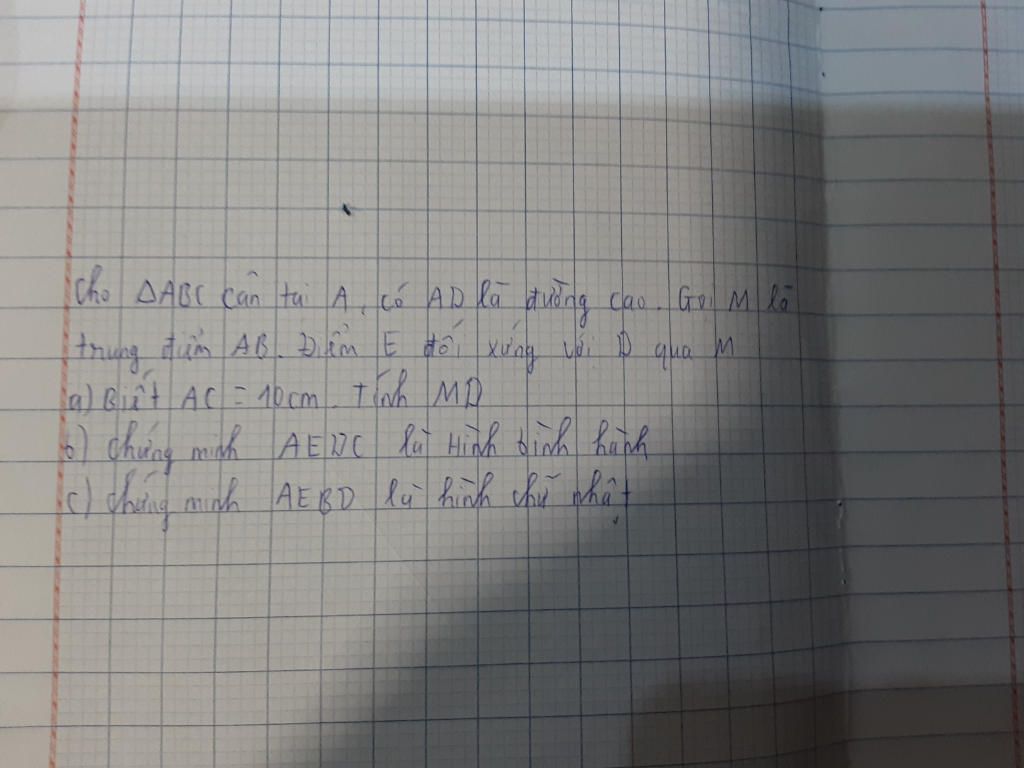 Cho ΔABC cân tại A, có AD là đường cao. Gọi M là
trung điểm AB. Điểm E đối xứng với D qua M
a) Biết AC = 10cm. Tính MD
b) Chứng minh AEDC là Hình bình hành
c) Chứng minh AEBD là hình chữ nhật